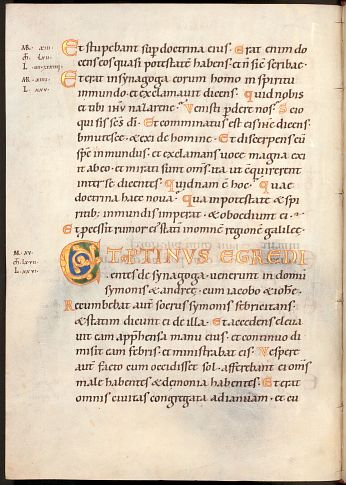 Et stupebant sup doctrina eius · Erat enim do
cens eos quasi potestatē habens · et ñ sic scribae ·
Et erat in synagoga eorum homo in spiritu
inmundo · et exclamavit dicens · Quid nobis
et tibi ihū nazarene · Venisti pdere nos · Scio
qui sis scs dī · Et comminatus est ei ihc dicens ·
obmutesce · & exi de homine · Et discerpens eū
spc inmundus · et exclamans voce magna exi
it ab eo · et mirati sunt oms · ita ut cquirerent
inter se dicentes · Quidnam ē hoc · Quae
doctrina haec nova · Quia in potestate & spi
ritib; inmundis imperat · & oboediunt ei ·
Et pcessit rumor ei statī in omnē regionē galileę ·
ET PROTINVS EGREDI
entes de synagoga · venerunt in domū
symonis & andreę · cum iacobo & iohe ·
Recumbebat aut socrus symonis febricitans ·
& statim dicunt ei de illa · Et accedens eleva
vit eam apphensa manu eius · et continuo di
misit eam febris · et ministrabat eis · Vespere
aut facto cum occidisset sol · afferebant ei oms
male habentes & demonia habentes · Et erat
omnis civitas congregata ad ianuam · et cu